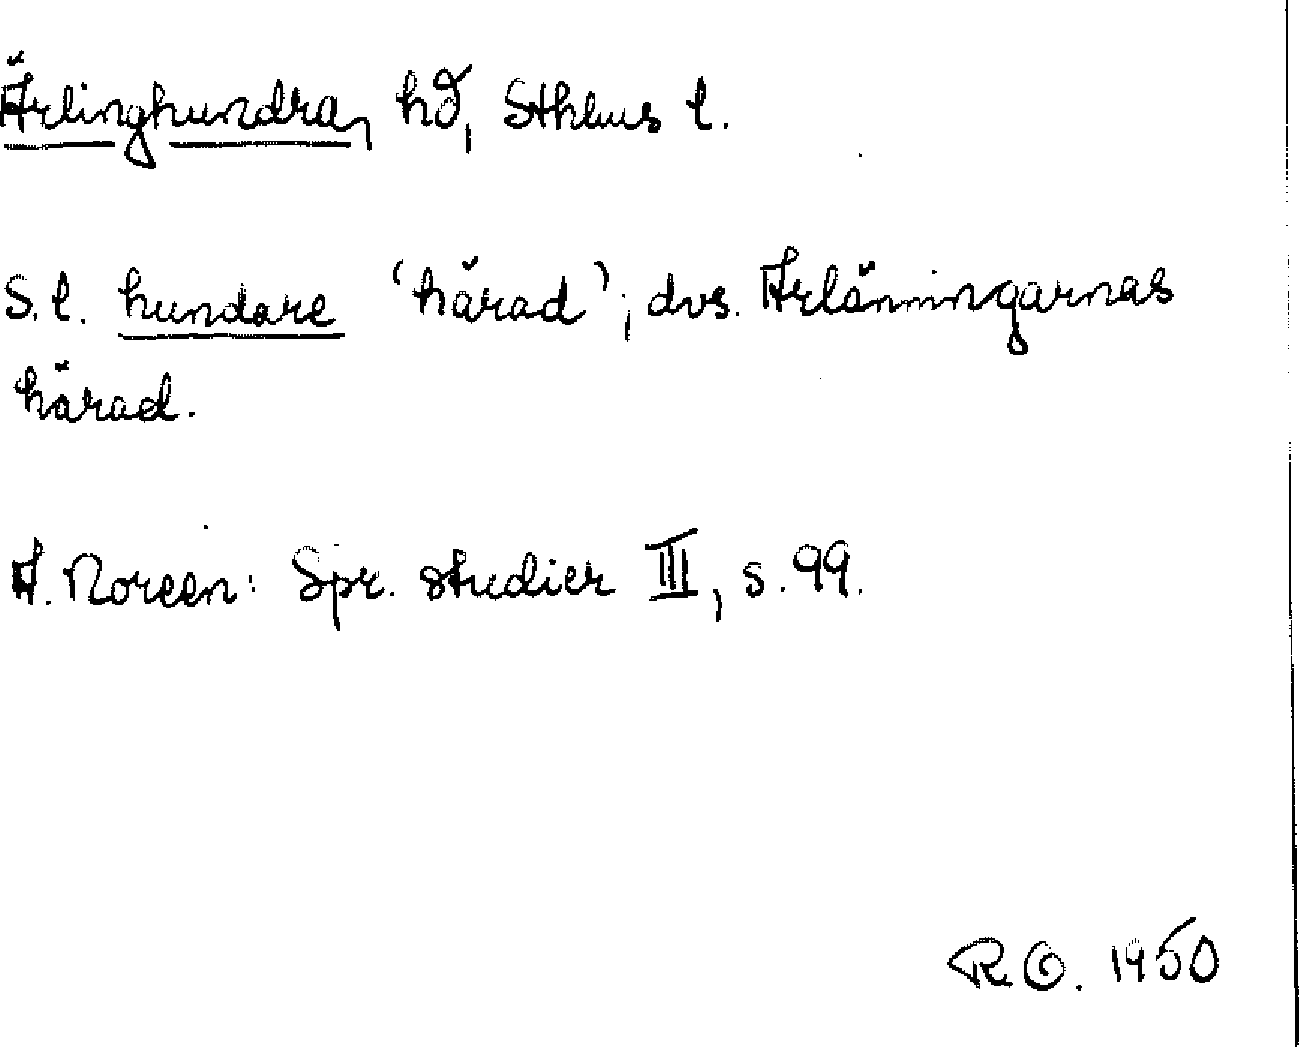 Ärlinghundra, hd, Sthlms l.
S.l. hundare 'härad'; dvs. Arlänningarnas
härad.
A. Noreen: Spr. studier III, s. 99.
R.O. 1950